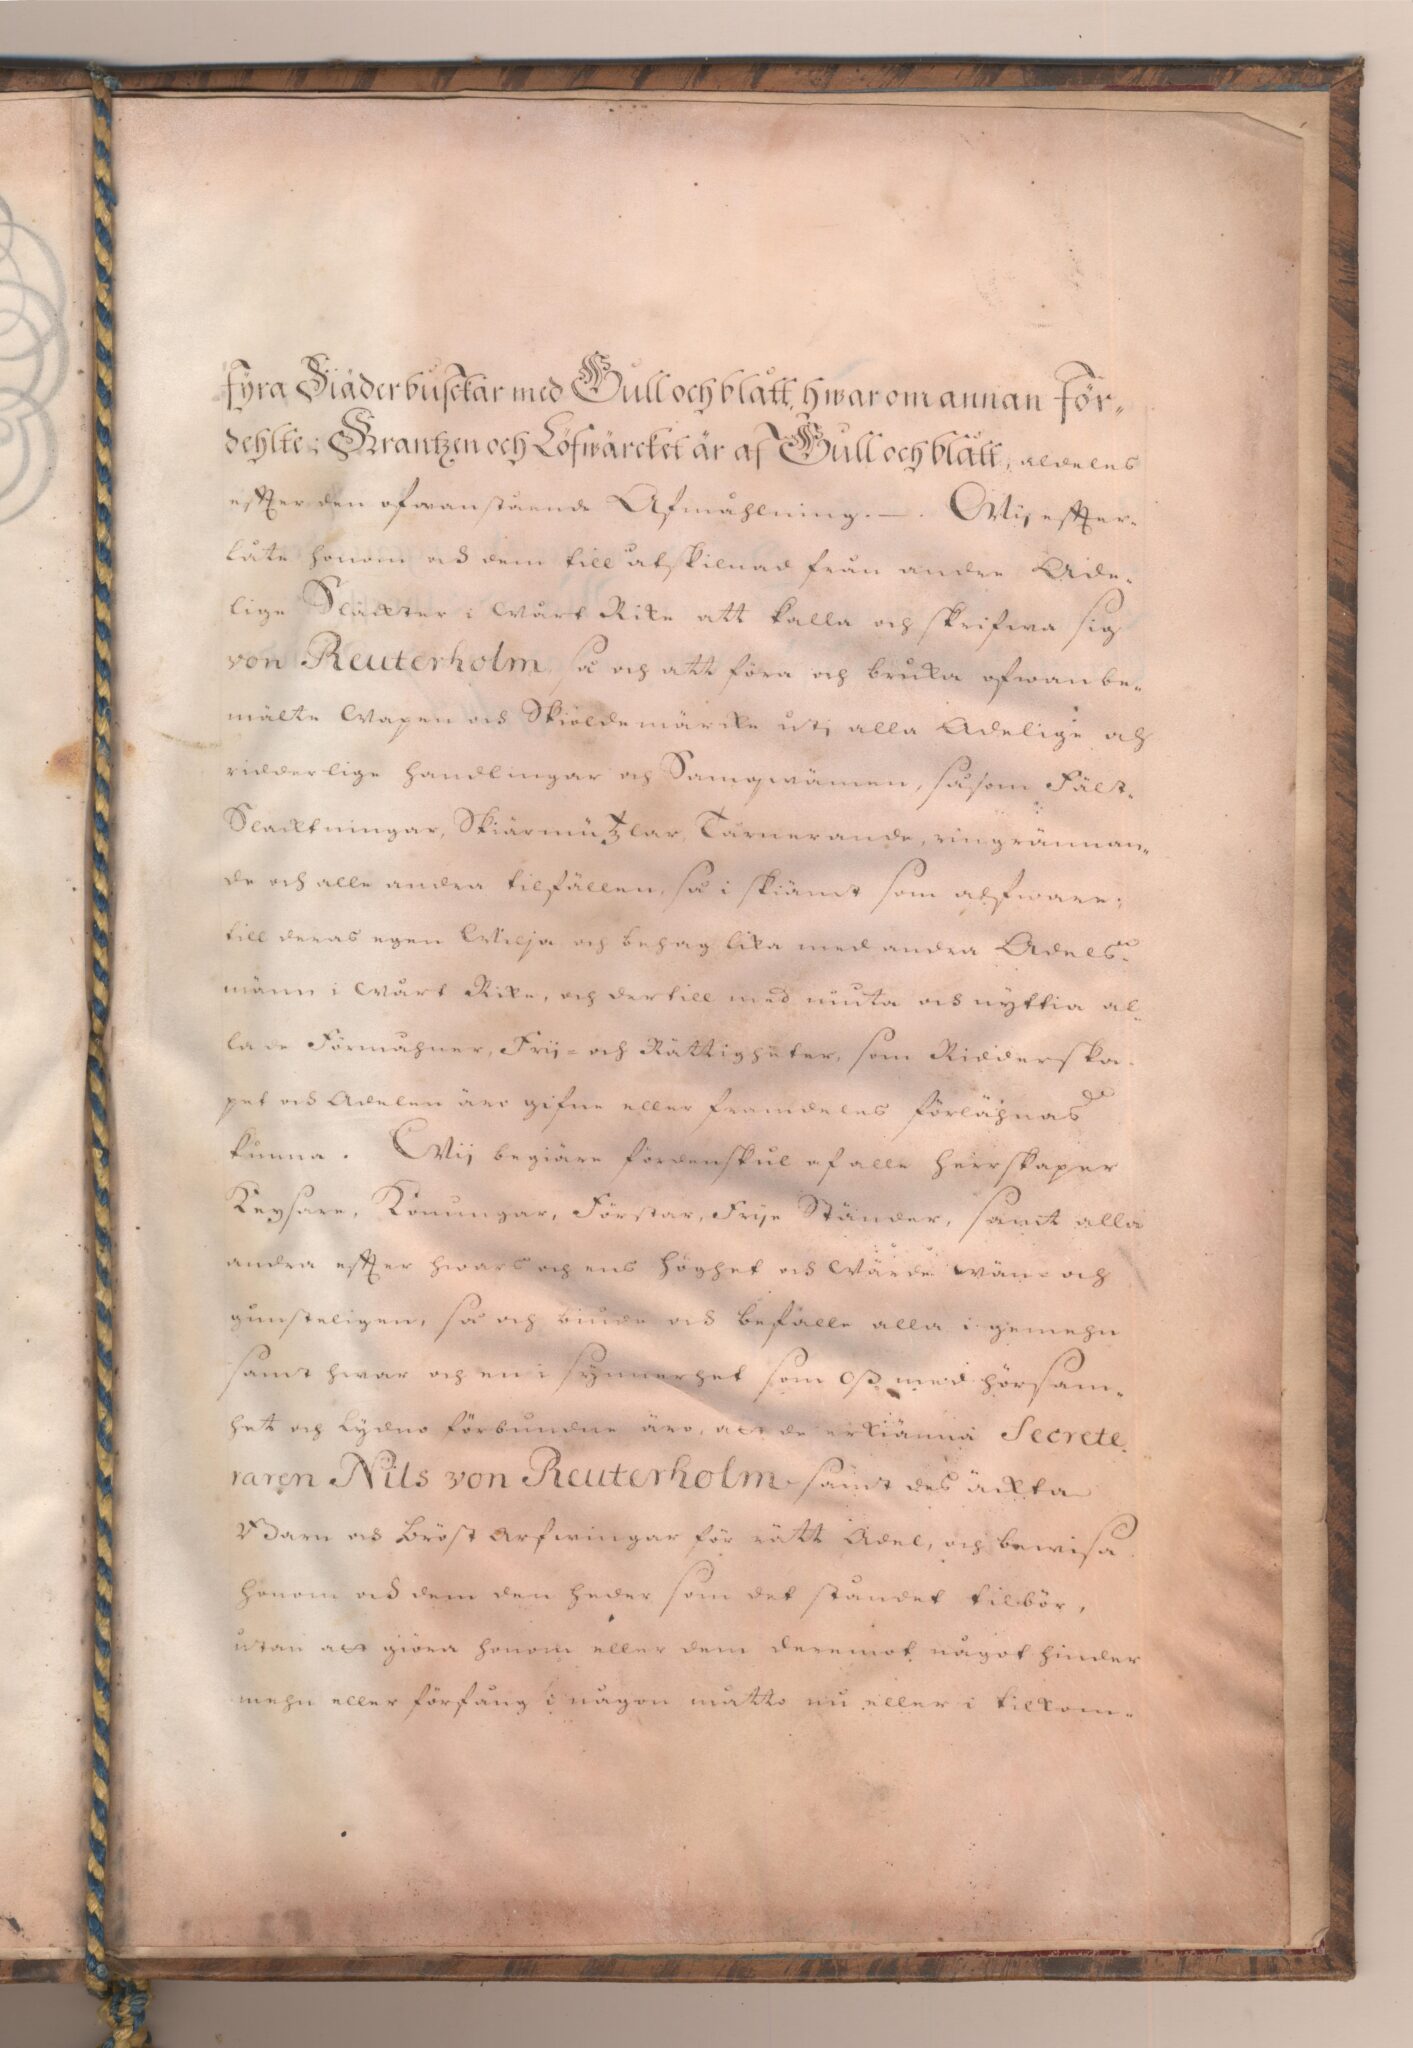 fyra Fiäderbusckar med Gull och blått, hwar om annan för-
dehlte; Krantzen och Löfwärcket är af Gull och blått, aldeles
effter den ofwanstående Afmåhlning. — . Wij effter-
låte honom och dem till åtskilnad från andre Ade-
lige Släckter i wårt Rike att kalla och skrifwa sig
von Reuterholm, så och att föra och bruka ofwanbe-
mälte Wapen och Skiöldemärcke utj alla Adelige och
ridderlige handlingar och Samqwämen, såsom Fält-
Slacktningar, Skiärmützlar, Tärnerande, ringrännan-
de och alle andra tilfällen, så i skiämt som alfware;
till deras egen Wilja och behag lika med andra Adels-
männ i wårt Rike, och dertill med niuta och nyttia al-
la de Förmåhner, Frij- och Rättigheter, som Ridderska-
pet och Adelen äro gifne eller framdeles förlähnas
kunna. Wij begiäre fördenskul af alle Herrskaper
Keysare, Konungar, Förstar, Frije Ständer, samt alla
andra effter hwars och ens höghet och wärde wän- och
gunsteligen, så och biude och befalle alla i gemehn
samt hwar och en i synnerhet som Oß med hörsam-
het och lydno förbundne äro, att de erkiänna Secrete-
raren Nils von Reuterholm samt des äckta
Barn och Bröst arfwingar för rätt Adel, och bewisa
honom och dem den heder som det ståndet tilbör,
utan att giöra honom eller dem deremot något hinder
mehn eller förfång i någon måtto nu eller i tilkom-